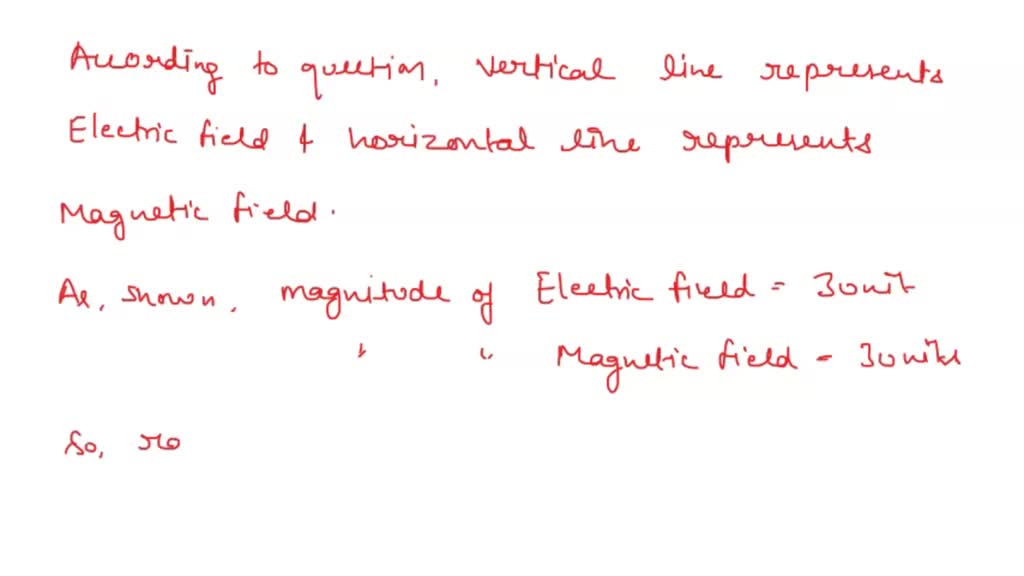 According to question, vertical line represents
Electric field & horizontal line represents
Magnetic field.
As, shown, magnitude of Electric field = 3 unit
" " Magnetic field = 3 units
So, ro